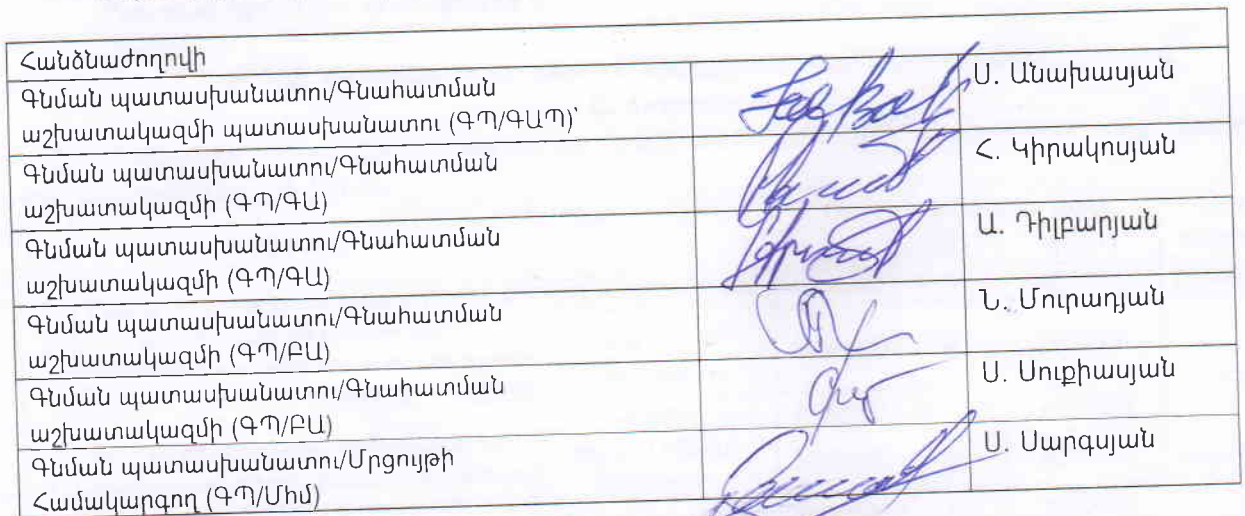 Հանձնաժողովի
Գնման պատասխանատու/Գնահատման
աշխատակազմի պատասխանատու (ԳՊ/ԳԱՊ)՝
Ս. Անախասյան
Գնման պատասխանատու/Գնահատման
աշխատակազմի (ԳՊ/ԳԱ)
Հ. Կիրակոսյան
Գնման պատասխանատու/Գնահատման
աշխատակազմի (ԳՊ/ԳԱ)
Ա. Դիլբարյան
Գնման պատասխանատու/Գնահատման
աշխատակազմի (ԳՊ/ԲԱ)
Ն. Մուրադյան
Գնման պատասխանատու/Գնահատման
աշխատակազմի (ԳՊ/ԲԱ)
Ս. Սուքիասյան
Գնման պատասխանատու/Մրցույթի
Համակարգող (ԳՊ/Մհմ)
Ս. Սարգսյան